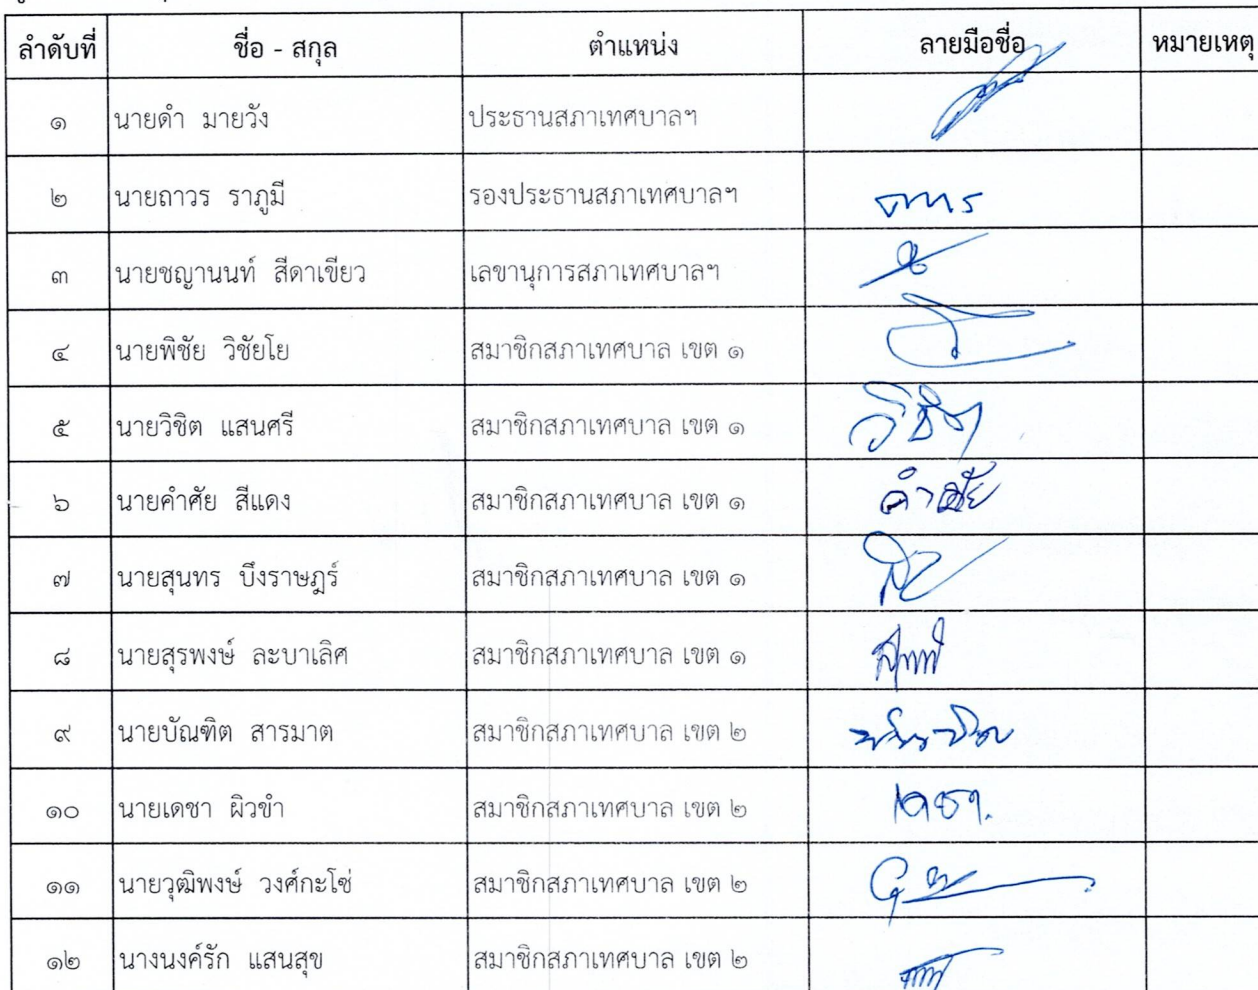 ลำดับที่ ชื่อ - สกุล ตำแหน่ง ลายมือชื่อ หมายเหตุ
๑ นายดำ มายวัง ประธานสภาเทศบาลฯ
๒ นายถาวร ราภูมี รองประธานสภาเทศบาลฯ ถาวร
๓ นายชญานนท์ สีดาเขียว เลขานุการสภาเทศบาลฯ
๔ นายพิชัย วิชัยโย สมาชิกสภาเทศบาล เขต ๑
๕ นายวิชิต แสนศรี สมาชิกสภาเทศบาล เขต ๑ วิชิต
๖ นายคำศัย สีแดง สมาชิกสภาเทศบาล เขต ๑ คำศัย
๗ นายสุนทร บึงราษฎร์ สมาชิกสภาเทศบาล เขต ๑
๘ นายสุรพงษ์ ละบาเลิศ สมาชิกสภาเทศบาล เขต ๑
๙ นายบัณฑิต สารมาต สมาชิกสภาเทศบาล เขต ๒
๑๐ นายเดชา ผิวขำ สมาชิกสภาเทศบาล เขต ๒ เดชา
๑๑ นายวุฒิพงษ์ วงศ์กะโซ่ สมาชิกสภาเทศบาล เขต ๒
๑๒ นางนงค์รัก แสนสุข สมาชิกสภาเทศบาล เขต ๒